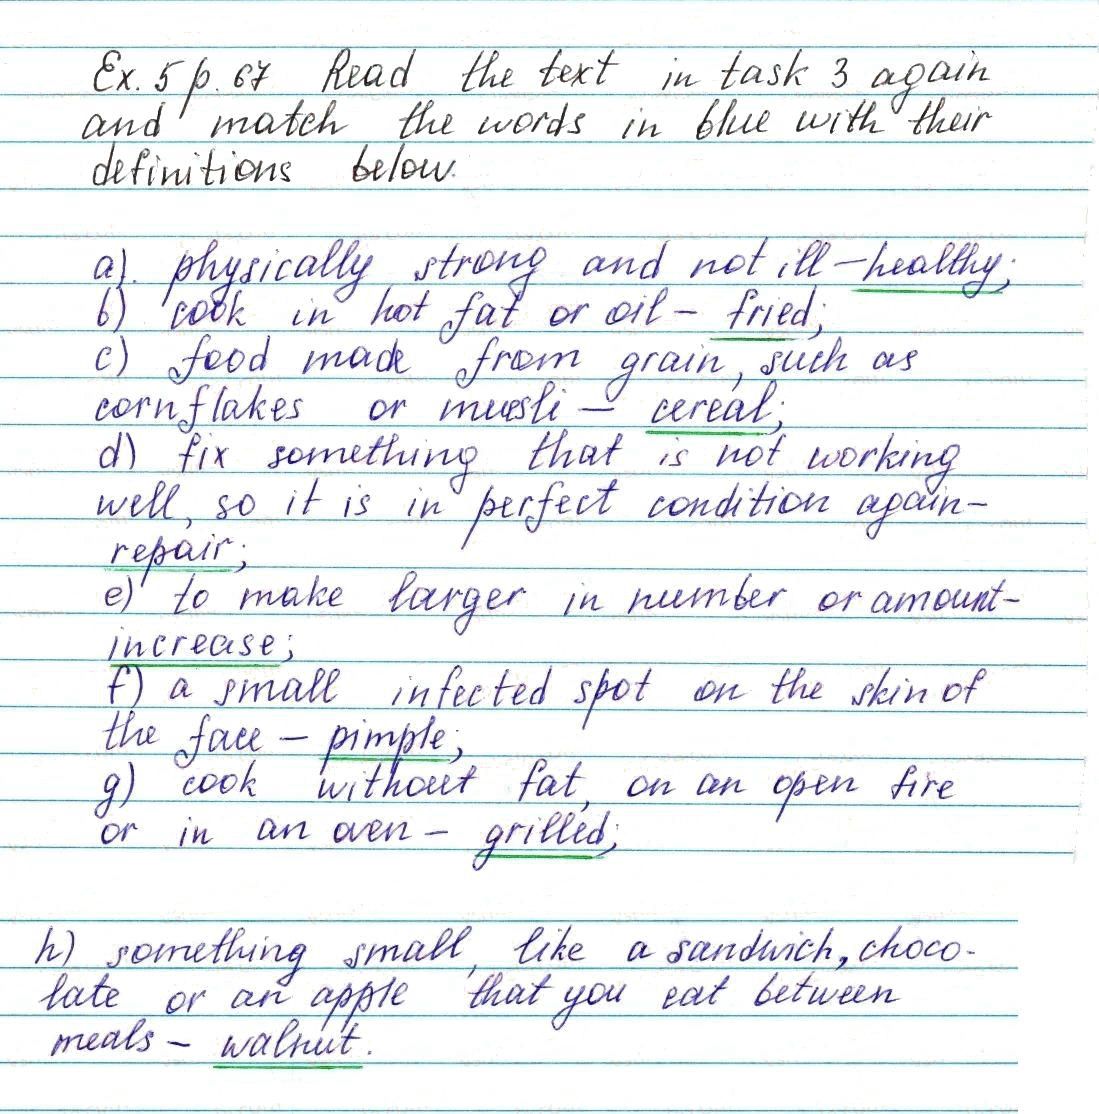 Ex. 5 p. 67 Read the text in task 3 again
and match the words in blue with their
definitions below.
a). physically strong and not ill – healthy;
b) cook in hot fat or oil – fried;
c) food made from grain, such as
cornflakes or muesli – cereal;
d) fix something that is not working
well, so it is in perfect condition again –
repair;
e) to make larger in number or amount –
increase;
f) a small infected spot on the skin of
the face – pimple;
g) cook without fat, on an open fire
or in an oven – grilled;
h) something small, like a sandwich, choco-
late or an apple that you eat between
meals – walnut.